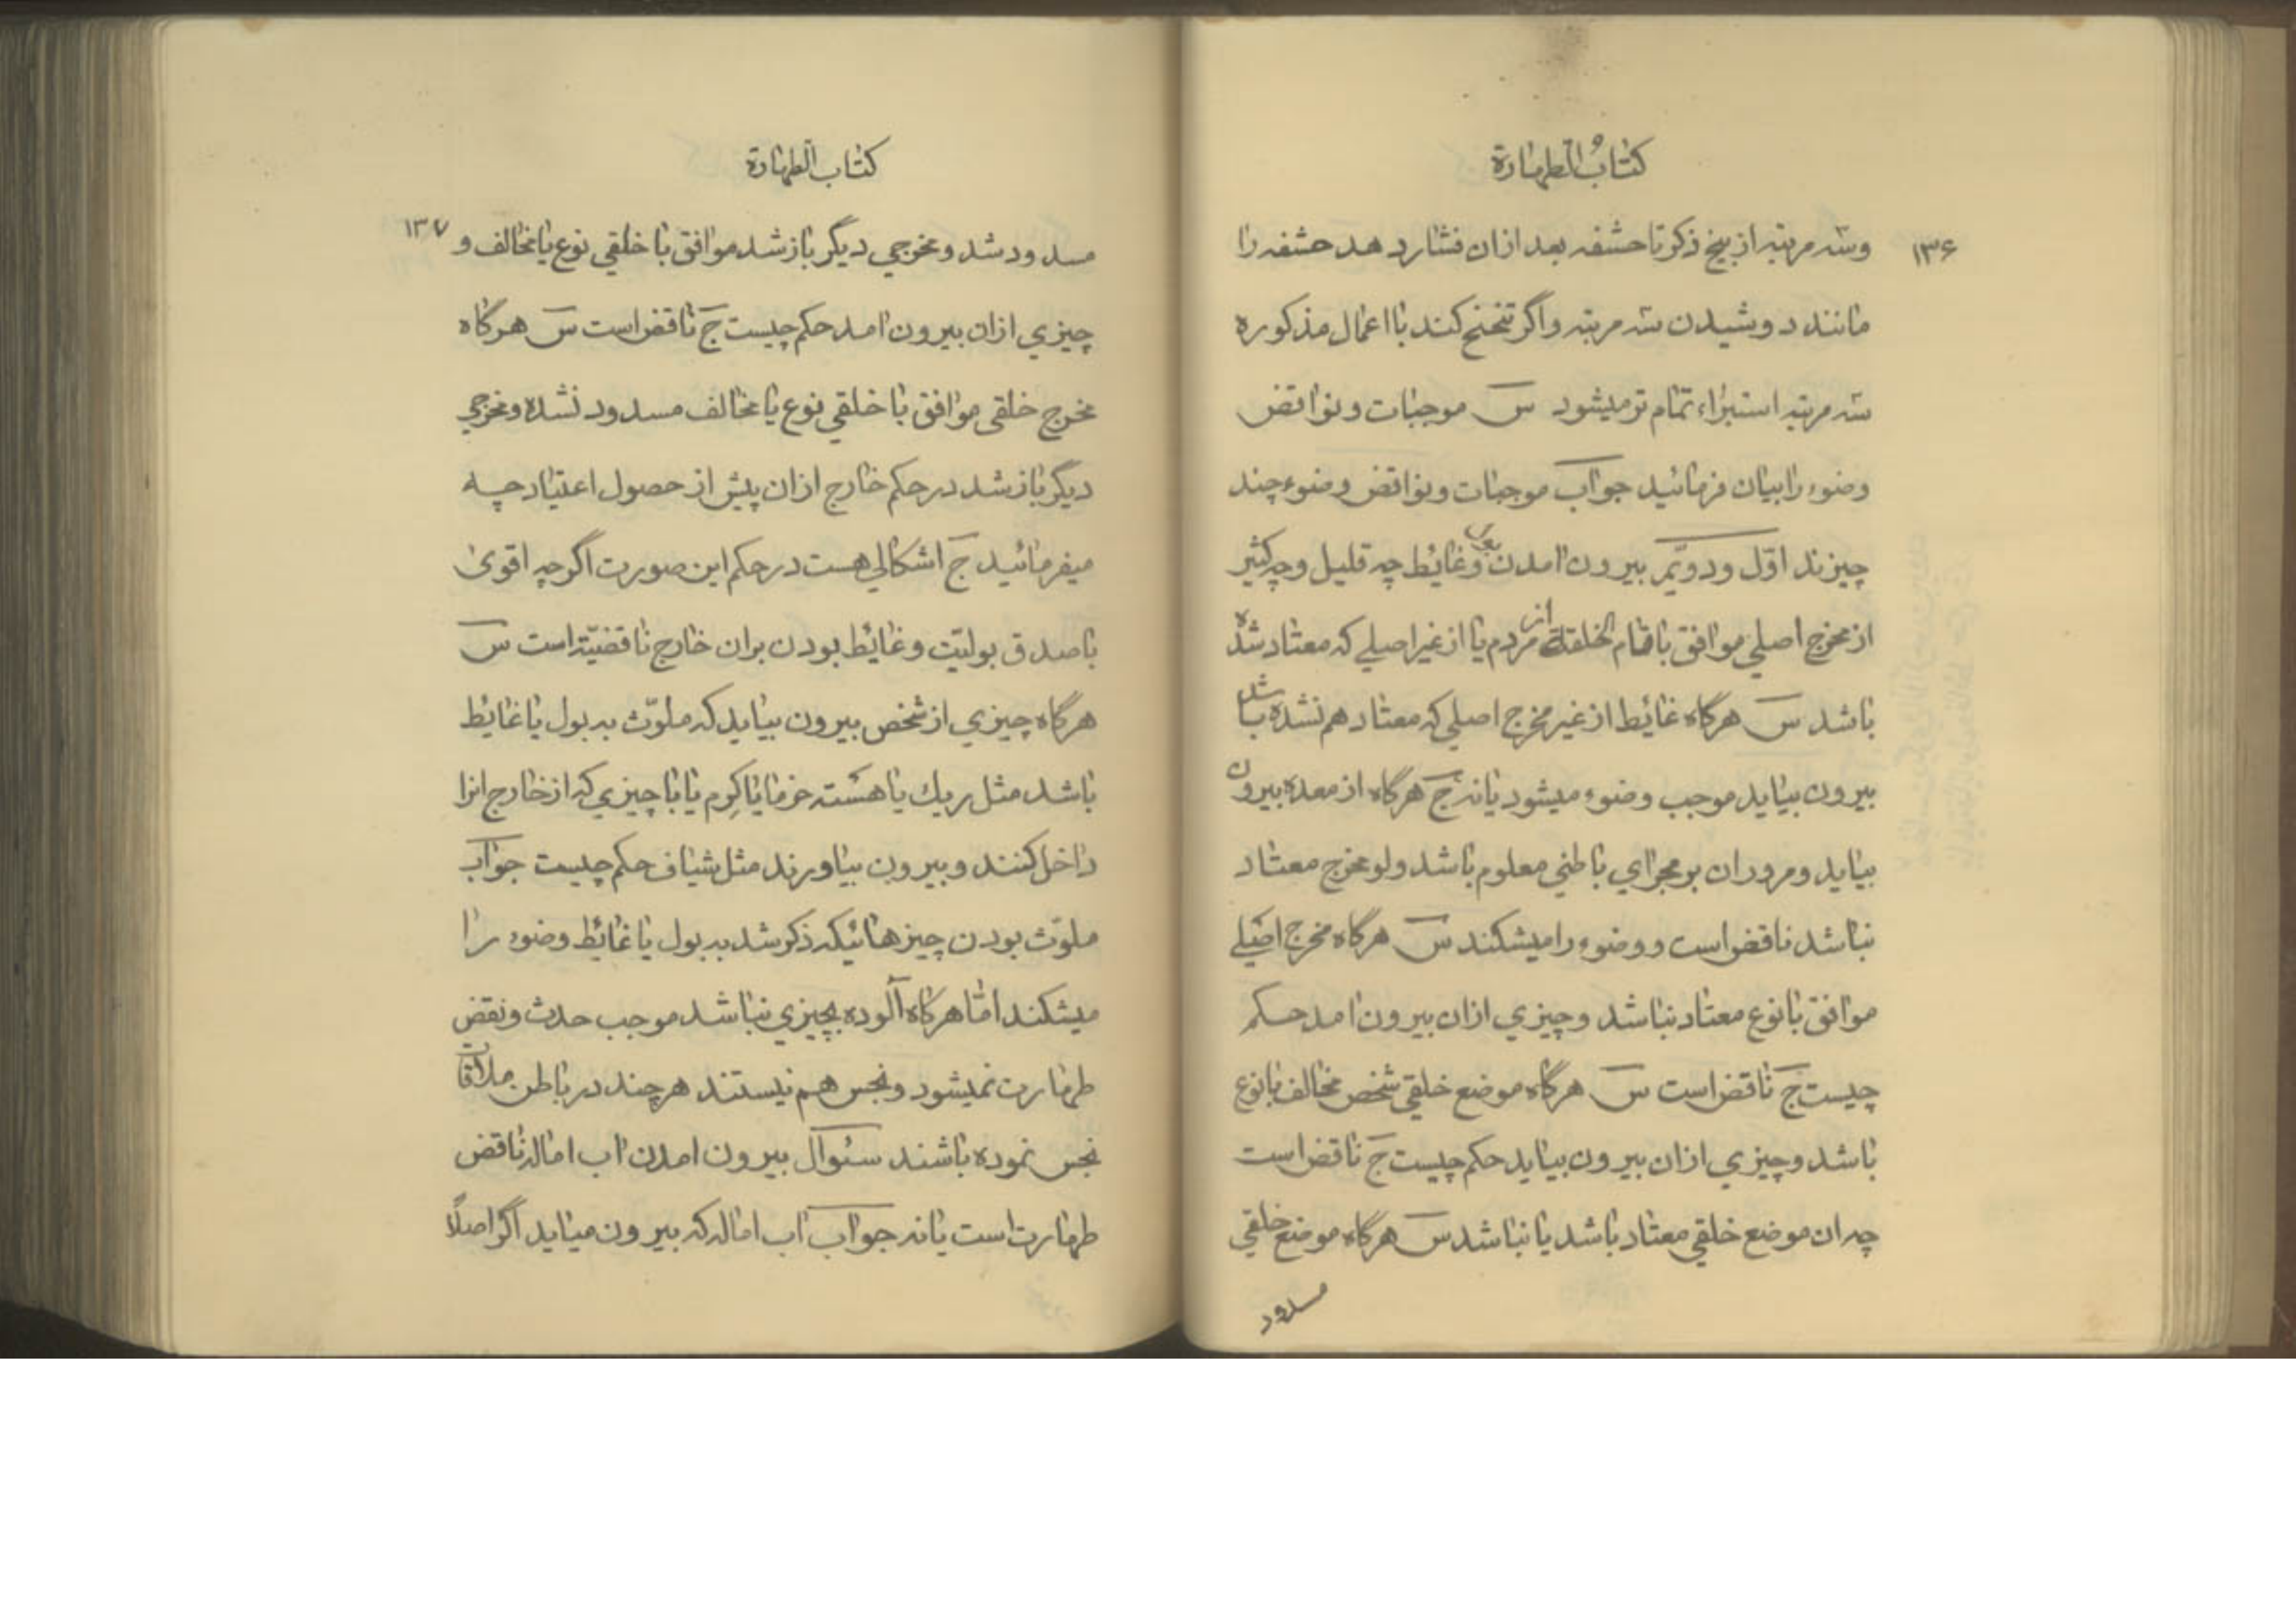 كتابُ الطهارة
۱۳۶
وسه مرتبه از بیخ ذکر تا حشفه بعد ازان فشار دهد حشفه را
مانند دوشیدن سه مرتبه واگر تنحنح کند با اعمال مذکوره
سه مرتبه استبراء تمام تر میشود س موجبات ونواقض
وضوء را بیان فرمائید جواب موجبات ونواقض وضوء چند
چیزند اوّل ودویّم بیرون امدن بول وغائط چه قلیل وچه کثیر
از مخرج اصلي موافق با تمام الخلقة از مردم یا از غیر اصلي که معتاد شده
باشد س هرگاه غائط از غیر مخرج اصلي که معتاد هم نشده باشد
بیرون بیاید موجب وضوء میشود یا نه ج هرگاه از معده بیرون
بیاید ومرور ان بر مجراي باطني معلوم باشد ولو مخرج معتاد
نباشد ناقض است ووضوء را میشکند س هرگاه مخرج اصلي
موافق با نوع معتاد نباشد وچیزي ازان بیرون امد حکم
چیست ج ناقض است س هرگاه موضع خلقي شخص مخالف با نوع
باشد وچیزي ازان بیرون بیاید حکم چیست ج ناقض است
چه ان موضع خلقي معتاد باشد یا نباشد س هرگاه موضع خلقي
مسدود
كتاب الطهارة
۱۳۷
مسدود شد ومخرجي دیگر باز شد موافق با خلقي نوع یا مخالف و
چیزي ازان بیرون امد حکم چیست ج ناقض است س هرگاه
مخرج خلقي موافق با خلقي نوع یا مخالف مسدود نشده ومخرجي
دیگر باز شد در حکم خارج ازان پیش از حصول اعتیاد چه
میفرمائید ج اشکالي هست در حکم این صورت اگرچه اقوی
با صدق بولیّت وغائط بودن بران خارج ناقضیّة است س
هرگاه چیزي از شخص بیرون بیاید که ملوّث به بول یا غایط
باشد مثل ریك یا هسته خرما یا کِرم یا با چیزي که از خارج انرا
داخل کنند وبیرون بیاورند مثل شیاف حکم چیست جواب
ملوّث بودن چیزهائیکه ذکر شد به بول یا غائط وضوء را
میشکند امّا هرگاه آلوده بچیزي نباشد موجب حدث ونقض
طهارت نمیشود ونجس هم نیستند هرچند در باطن ملاقات
نجس نموده باشند سئوال بیرون امدن اب اماله ناقض
طهارت است یا نه جواب اب اماله که بیرون میاید اگر اصلًا